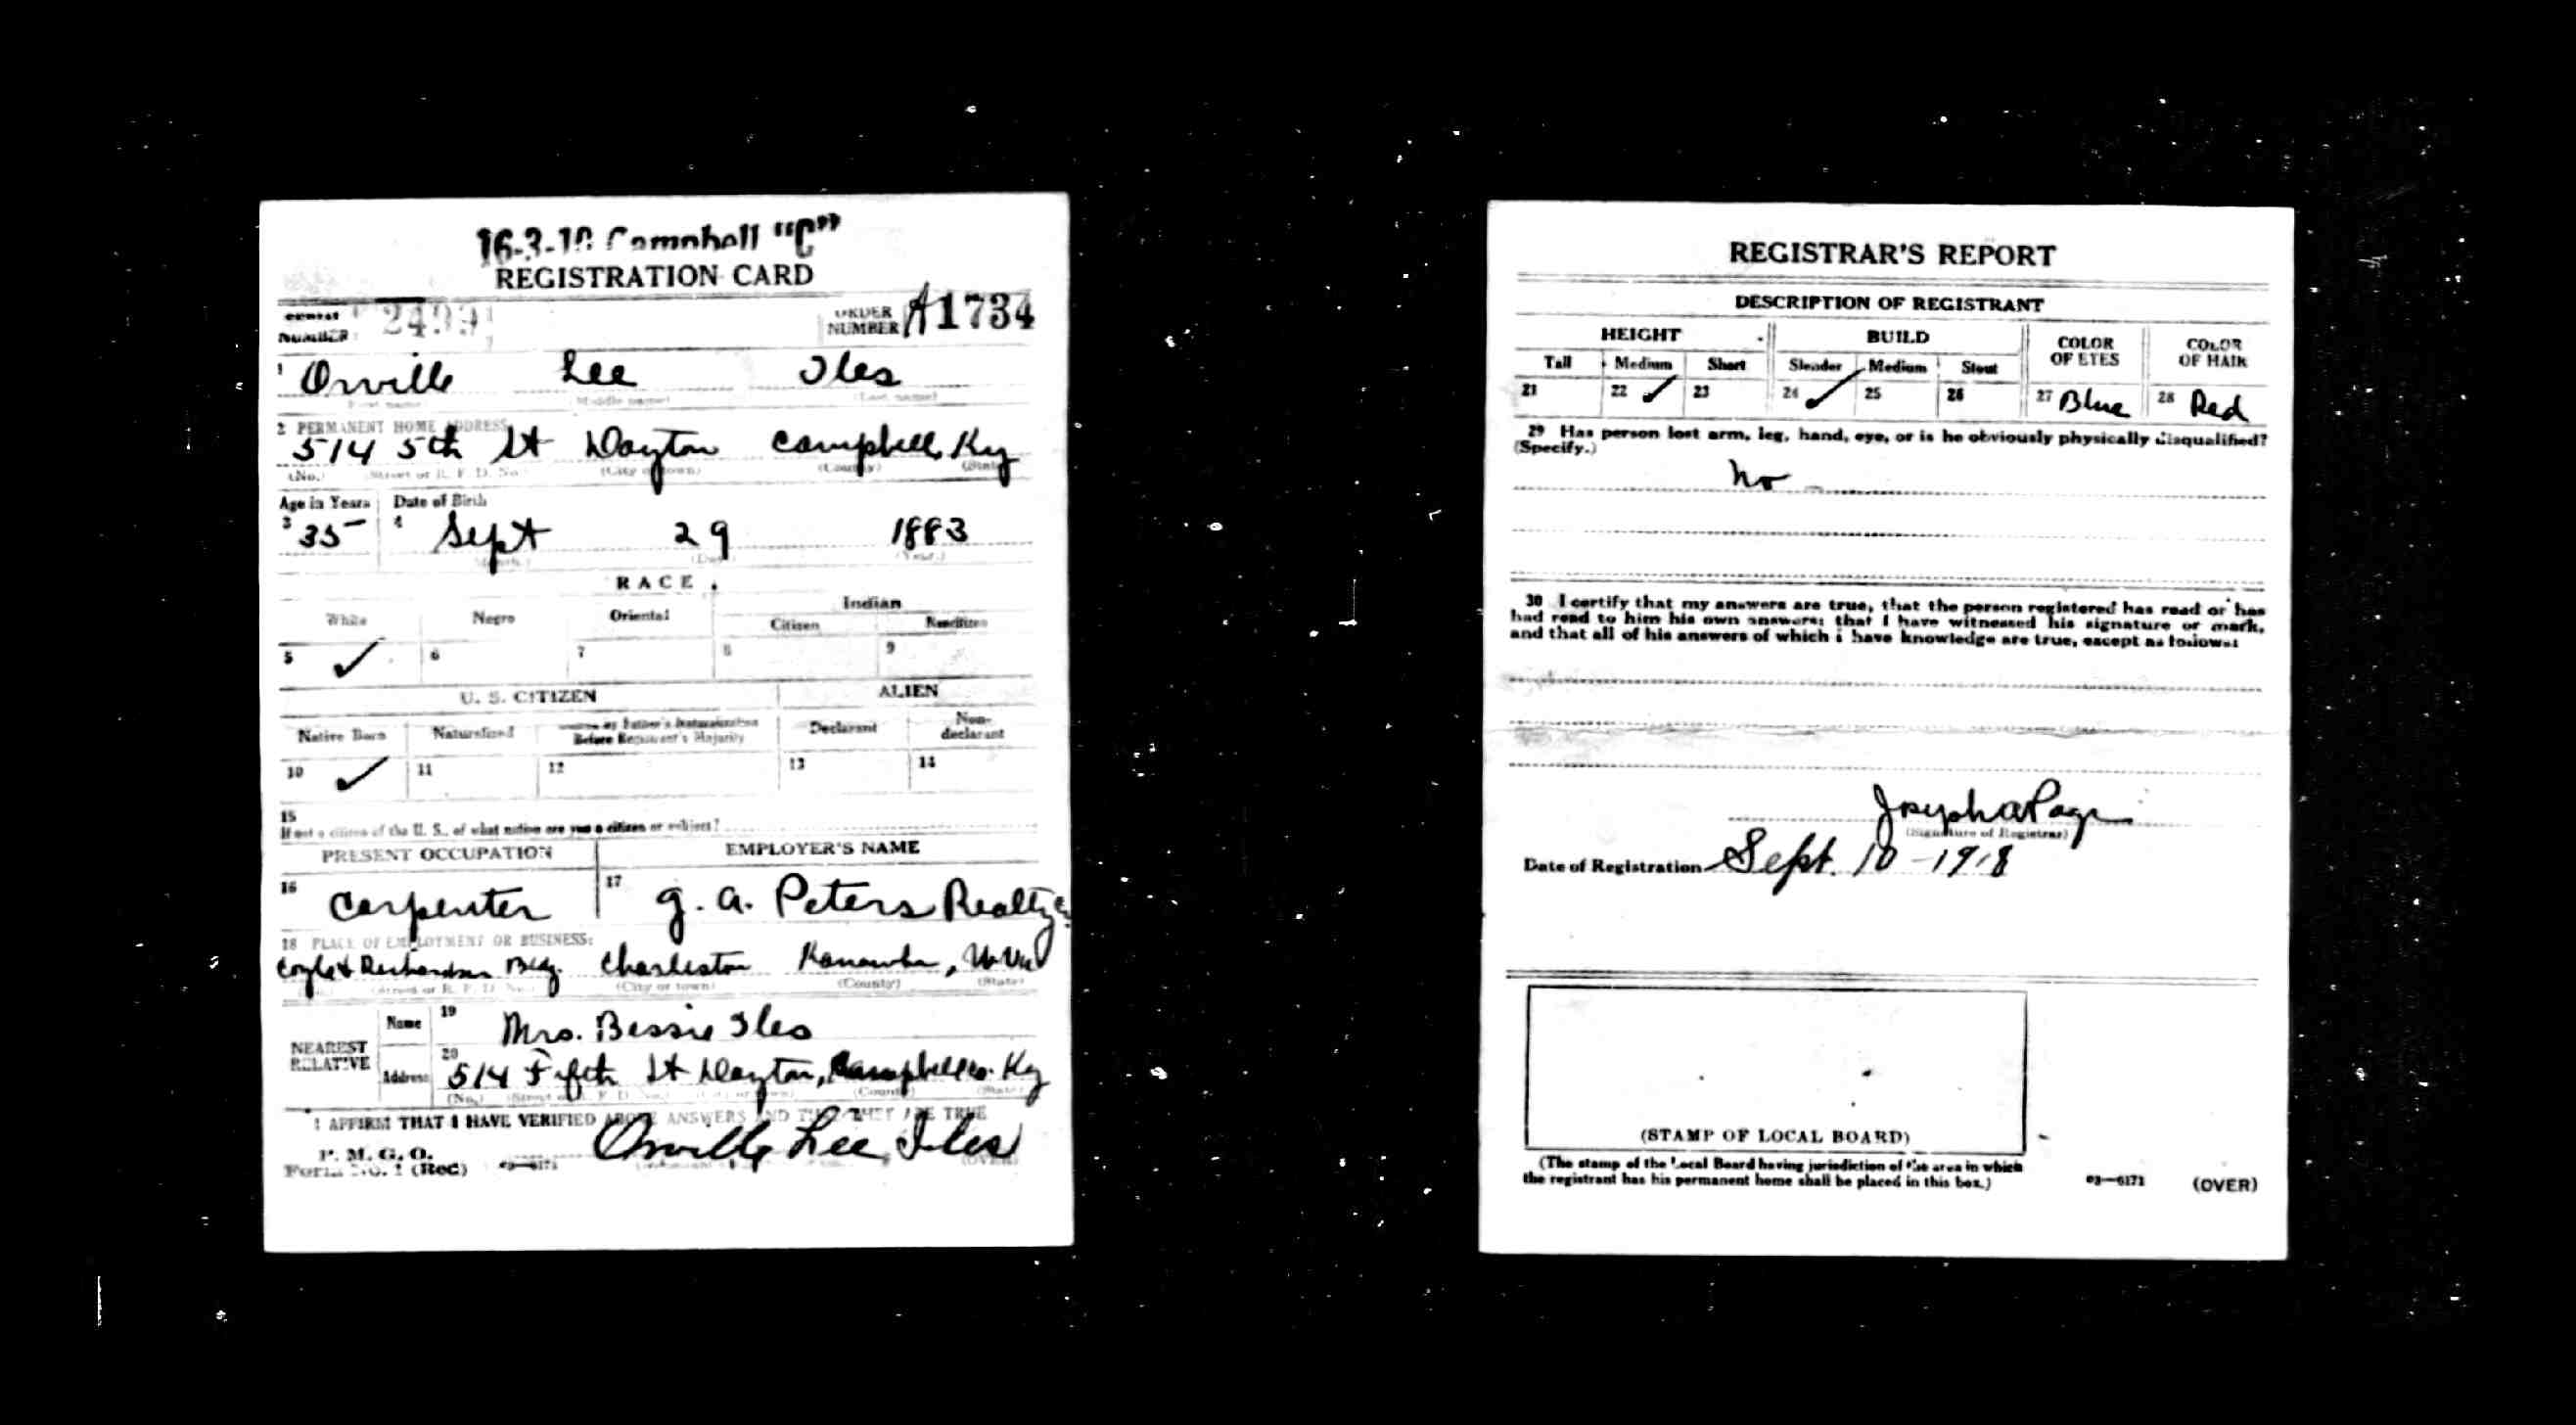 16-3-10 Campbell "C"
REGISTRATION CARD
NUMBER ORDER NUMBER A1734
1 Orville Lee Iles
First name (Middle name) (Last name)
2 PERMANENT HOME ADDRESS
514 5th St Dayton Campbell, Ky
(No.) Street or R. F. D. No. (City or town) (County) (State)
Age in Years Date of Birth
3 35 4 Sept 29 1883
(Day) (Year)
RACE
White Negro Oriental Indian
Citizen
5 ✓ 6 7 8 9
U. S. CITIZEN ALIEN
Native Born Naturalized Before Registrant's Majority Declarant Non-declarant
10 ✓ 11 12 13 14
15
If not a citizen of the U. S., of what nation are you a citizen or subject?
PRESENT OCCUPATION EMPLOYER'S NAME
16 Carpenter 17 G. A. Peters Realty Co
18 PLACE OF EMPLOYMENT OR BUSINESS:
Coyle & Richardson Bldg. Charleston Kanawha, W Va
Street or R. F. D. No. (City or town) (County) (State)
NEAREST RELATIVE Name 19 Mrs. Bessie Iles
Address 20 514 Fifth St Dayton, Campbell Co. Ky
(No.) (County) (State)
I AFFIRM THAT I HAVE VERIFIED ABOVE ANSWERS AND THAT THEY ARE TRUE
P. M. G. O.
Form No. 1 (Red) 03-6171 Orville Lee Iles
(OVER)
REGISTRAR'S REPORT
DESCRIPTION OF REGISTRANT
HEIGHT BUILD COLOR OF EYES COLOR OF HAIR
Tall Medium Short Slender Medium Stout
21 22 ✓ 23 24 ✓ 25 26 27 Blue 28 Red
29 Has person lost arm, leg, hand, eye, or is he obviously physically disqualified?
(Specify.)
No
30 I certify that my answers are true, that the person registered has read or has
had read to him his own answers; that I have witnessed his signature or mark,
and that all of his answers of which I have knowledge are true, except as follows:
Joseph A Page
(Signature of Registrar)
Date of Registration Sept. 10-1918
(STAMP OF LOCAL BOARD)
(The stamp of the Local Board having jurisdiction of the area in which
the registrant has his permanent home shall be placed in this box.)
03-6171 (OVER)